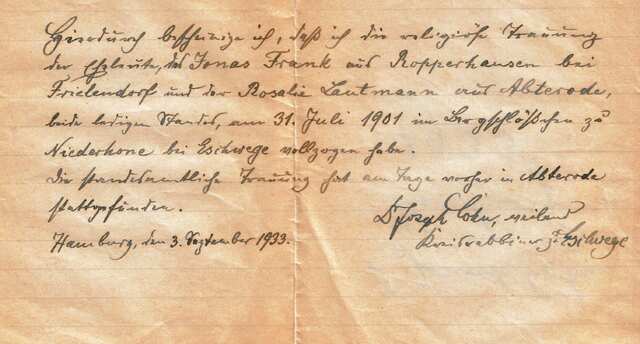 Hierdurch bescheinige ich, daß ich die religiöse Trauung
der Eheleute, des Jonas Frank aus Ropperhausen bei
Frielendorf und der Rosalie Lautmann aus Abterode,
beide ledigen Standes, am 31. Juli 1901 im Bergschlößchen zu
Niederhone bei Eschwege vollzogen habe.
Die standesamtliche Trauung hat am Tage vorher in Abterode
stattgefunden.
Hamburg, den 3. September 1933.
Dr Joseph Cohn, weiland
Kreisrabbiner zu Eschwege